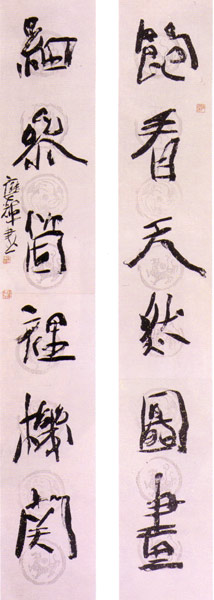 飽看天然圖畫
細參箇裡機関